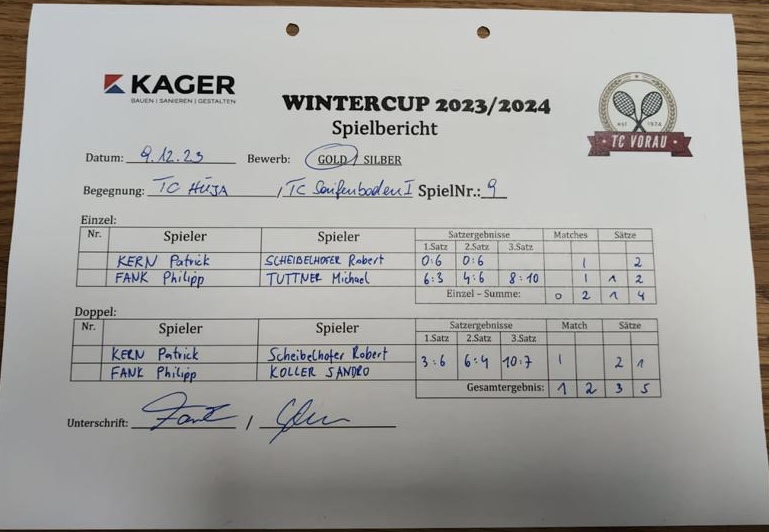 KAGER
BAUEN | SANIEREN | GESTALTEN
WINTERCUP 2023/2024
Spielbericht
est 1974
TC VORAU
Datum: 9.12.23 Bewerb: GOLD / SILBER
Begegnung: TC HÜJA / TC Saifenboden I SpielNr.: 9
Einzel:
Nr. Spieler Spieler Satzergebnisse Matches Sätze
1.Satz 2.Satz 3.Satz
KERN Patrick SCHEIBELHOFER Robert 0:6 0:6 1 2
FANK Philipp TUTTNER Michael 6:3 4:6 8:10 1 1 2
Einzel – Summe: 0 2 1 4
Doppel:
Nr. Spieler Spieler Satzergebnisse Match Sätze
1.Satz 2.Satz 3.Satz
KERN Patrick Scheibelhofer Robert 3:6 6:4 10:7 1 2 1
FANK Philipp KOLLER SANDRO
Gesamtergebnis: 1 2 3 5
Unterschrift: /